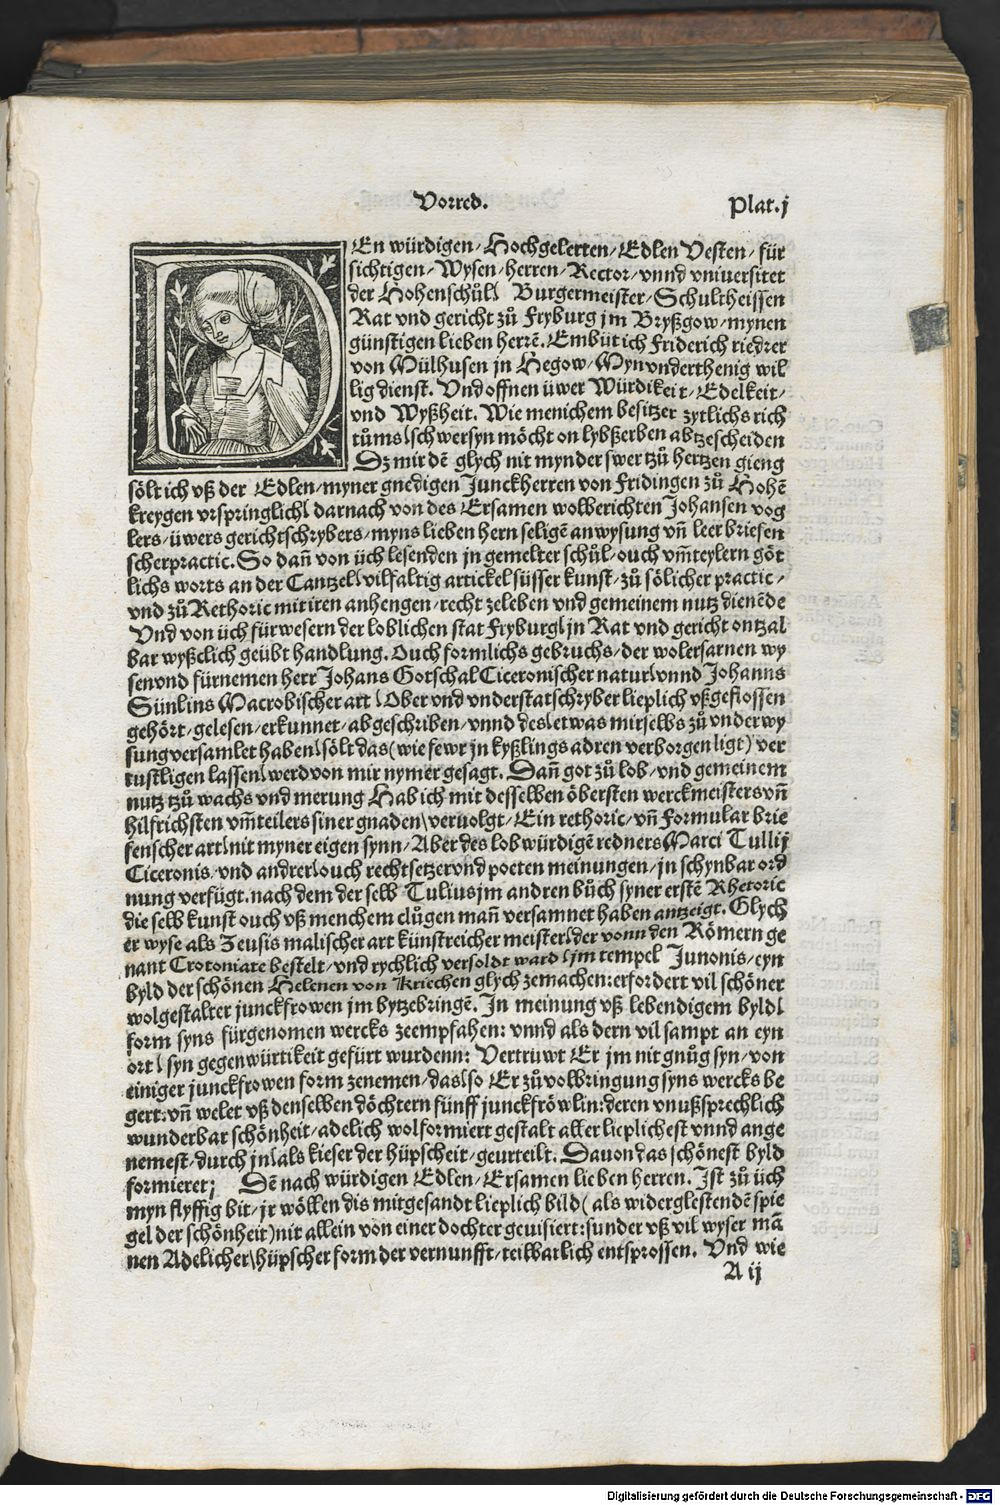 Vorred.
Plat.j
DEn würdigen/Hochgelerten/Edlen Vesten/für
sichtigen/Wysen/herren/Rector/vnnd vniuersitet
der Hohenschůl/ Burgermeister/Schultheissen
Rat vnd gericht zů Fryburg jm Bryßgow/mynen
günstigen lieben herrē. Embüt ich Friderich riedrer
von Mülhusen jn Hegow/Myn vnderthenig wil
lig dienst. Vnd offnen üwer Würdikeit/Edelkeit/
vnd Wyßheit. Wie menichem besitzer zytlichs rich
tůms/schwer syn möcht on lybßerben abzescheiden
Dz mir dē glych nit mynder swer tzů hertzen gieng
sölt ich vß der Edlen/myner gnedigen Junckherren von Fridingen zů Hohē
kreygen vrspringlich/ darnach von des Ersamen wolberichten Johansen vog
lers/üwers gerichtschrybers/myns lieben hern seligē anwysung vn̄ leer briefen
scherpractic. So dan̄ von üch lesenden jn gemelter schůl/ouch vm̄teylern göt
lichs worts an der Cantzel/vilfaltig artickel süsser kunst/zů sölicher practic/
vnd zů Rethoric mit iren anhengen/recht zeleben vnd gemeinem nutz dienēde
Vnd von üch fürwesern der loblichen stat Fryburg/jn Rat vnd gericht ontzal
bar wyßclich geübt handlung. Ouch formlichs gebruchs/der wolersarnen wy
sen vnd fürnemen herr Johans Gotschal Ciceronischer natur/vnnd Johanns
Sünlins Macrobischer art/Ober vnd vnderstatschryber lieplich vßgeflossen
gehört/gelesen/erkunnet/abgeschriben/vnnd des/etwas mir selbs zů vnderwy
sung versamlet haben/sölt das(wie fewr jn kyßlings adren verborgen ligt)ver
rustligen lassen/werd von mir nymer gesagt. Dan̄ got zů lob/vnd gemeinem
nutz tzů wachs vnd merung Hab ich mit desselben öbersten werckmeisters vn̄
hilfrichsten vm̄teilers siner gnaden/veruolgt/Ein rethoric/vn̄ Formular brie
fenscher art/nit myner eigen synn/Aber des lobwürdigē redners Marci Tullij
Ciceronis/vnd andrer/ouch rechtsetzer vnd poeten meinungen/jn schynbar ord
nung verfügt. nach dem der selb Tulius jm andren bůch syner erstē Rhetoric
die selb kunst ouch vß menchem clůgen man̄ versamnet haben antzeigt. Glych
er wyse als Zeusis malischer art künstreicher meister/der vonn den Römern ge
nant Crotoniate bestelt/vnd rychlich versoldt ward/jm tempel Junonis/eyn
byld der schönen Helenen von Kriechen glych zemachen:erfordert vil schöner
wolgestalter junckfrowen jm bytzebringē. In meinung vß lebendigem byld/
form syns fürgenomen wercks zeempfahen: vnnd als dern vil sampt an eyn
ort/syn gegenwürtikeit gefürt wurdenn: Vertruwt Er jm nit gnůg syn/von
einiger junckfrowen form zenemen/das/so Er zů volbringung syns wercks be
gert. vn̄ welet vß denselben döchtern fünff junckfröwlin:deren vnußsprechlich
wunderbar schönheit/adelich wolformiert gestalt aller lieplichest vnnd ange
nemest/durch jn/als kieser der hüpscheit/geurteilt. Dauon das schönest byld
formieret; Dē nach würdigen Edlen/Ersamen lieben herren. Ist zů üch
myn flyssig bit/jr wöllen dis mitgesandt lieplich bild(als widerglestendē spie
gel der schönheit)nit allein von einer dochter geuisiert:sunder vß vil wyser mā
nen Adelicher/hüpscher form der vernunfft/teilbarlich entsprossen. Vnd wie
A ij
Digitalisierung gefördert durch die Deutsche Forschungsgemeinschaft - DFG